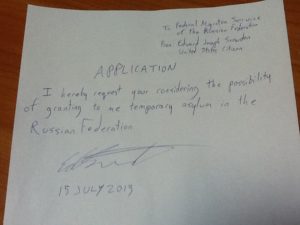 To Federal Migration Service
of the Russian Federation
From Edward Joseph Snowden
United States Citizen
APPLICATION
I hereby request your considering the possibility
of granting to me temporary asylum in the
Russian Federation
15 JULY 2013